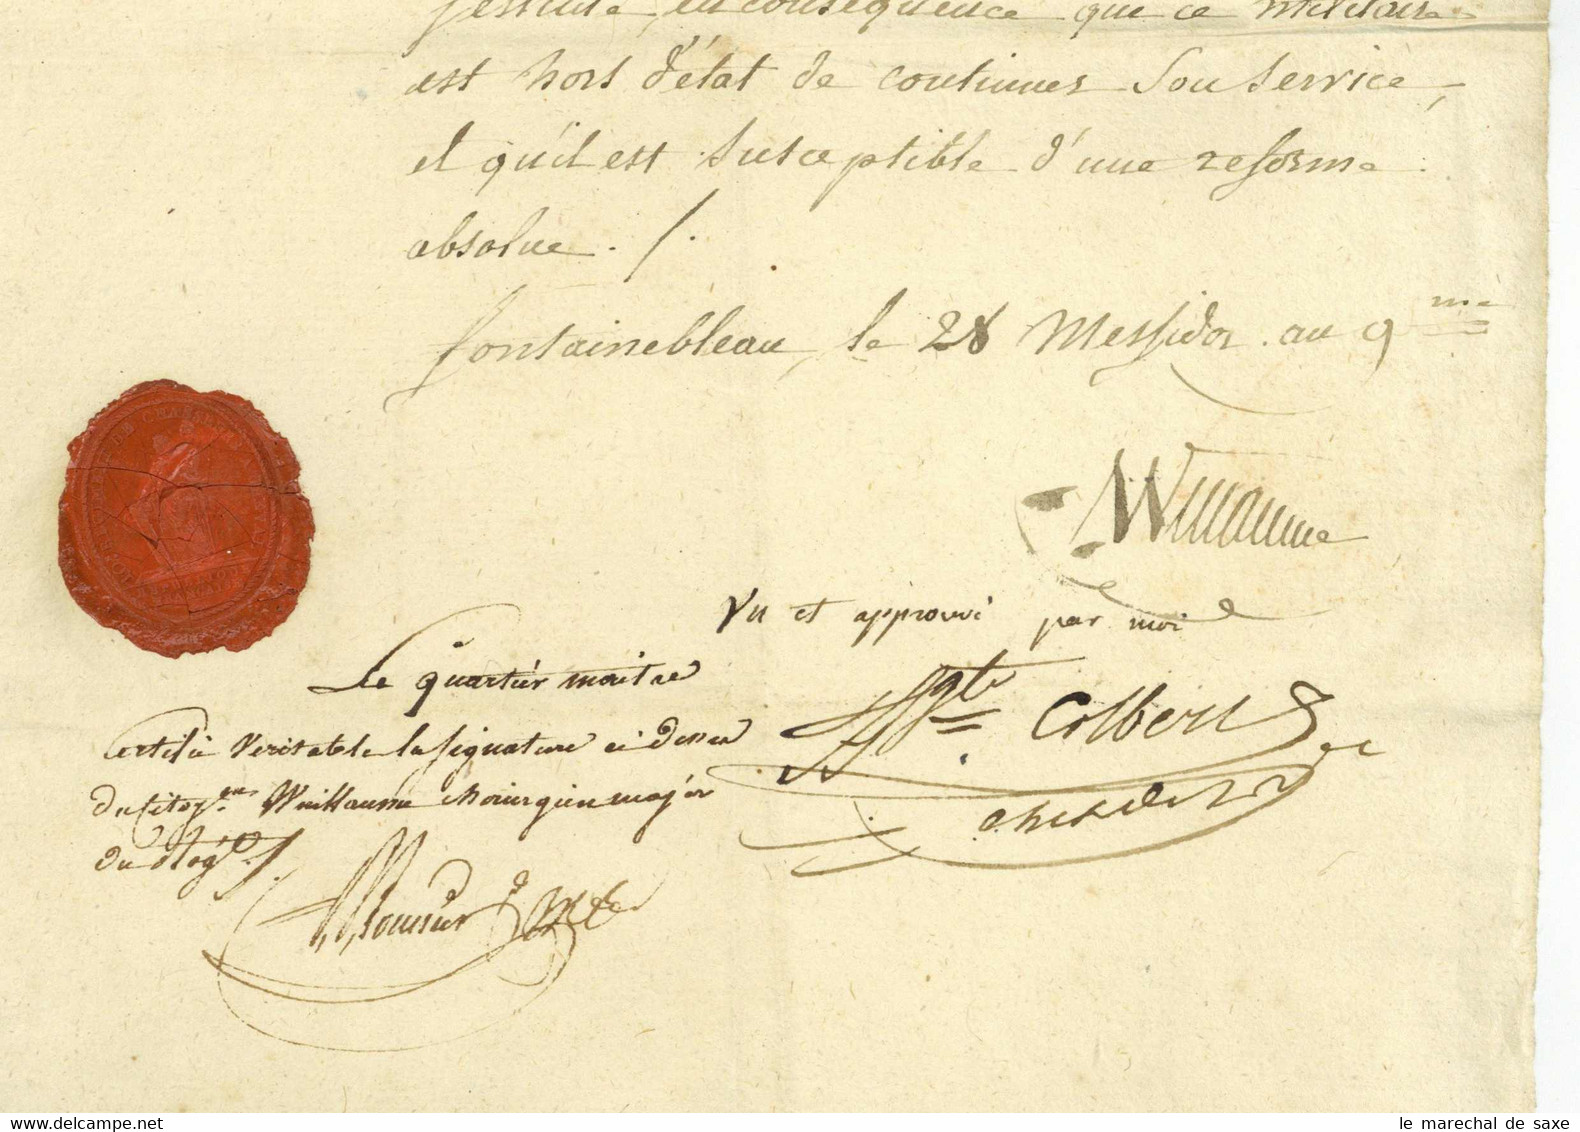 J'estime, en conséquence que ce militaire
est hors d'état de continuer son service,
et qu'il est susceptible d'une reforme
absolue ./.
fontainebleau, le 28 Messidor an 9me
Willaume
Vu et approuvé par moi
Agte Colbert
Le quartier maitre
Certifie veritable la signature ci dessus
du Citoyen Wuillaume chirurgien major
du d. Regt./.
le marechal de saxe